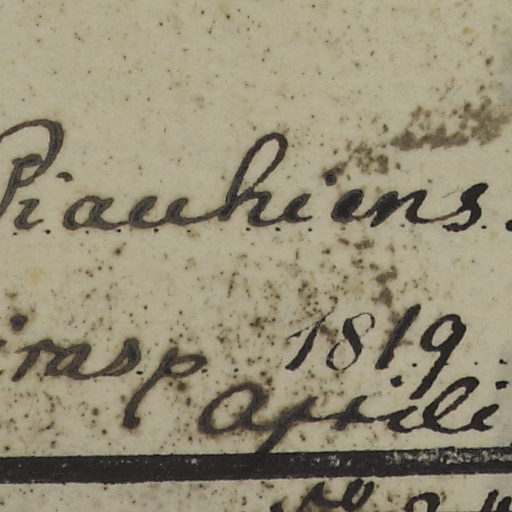 Piauhiens.
1819
Aprili